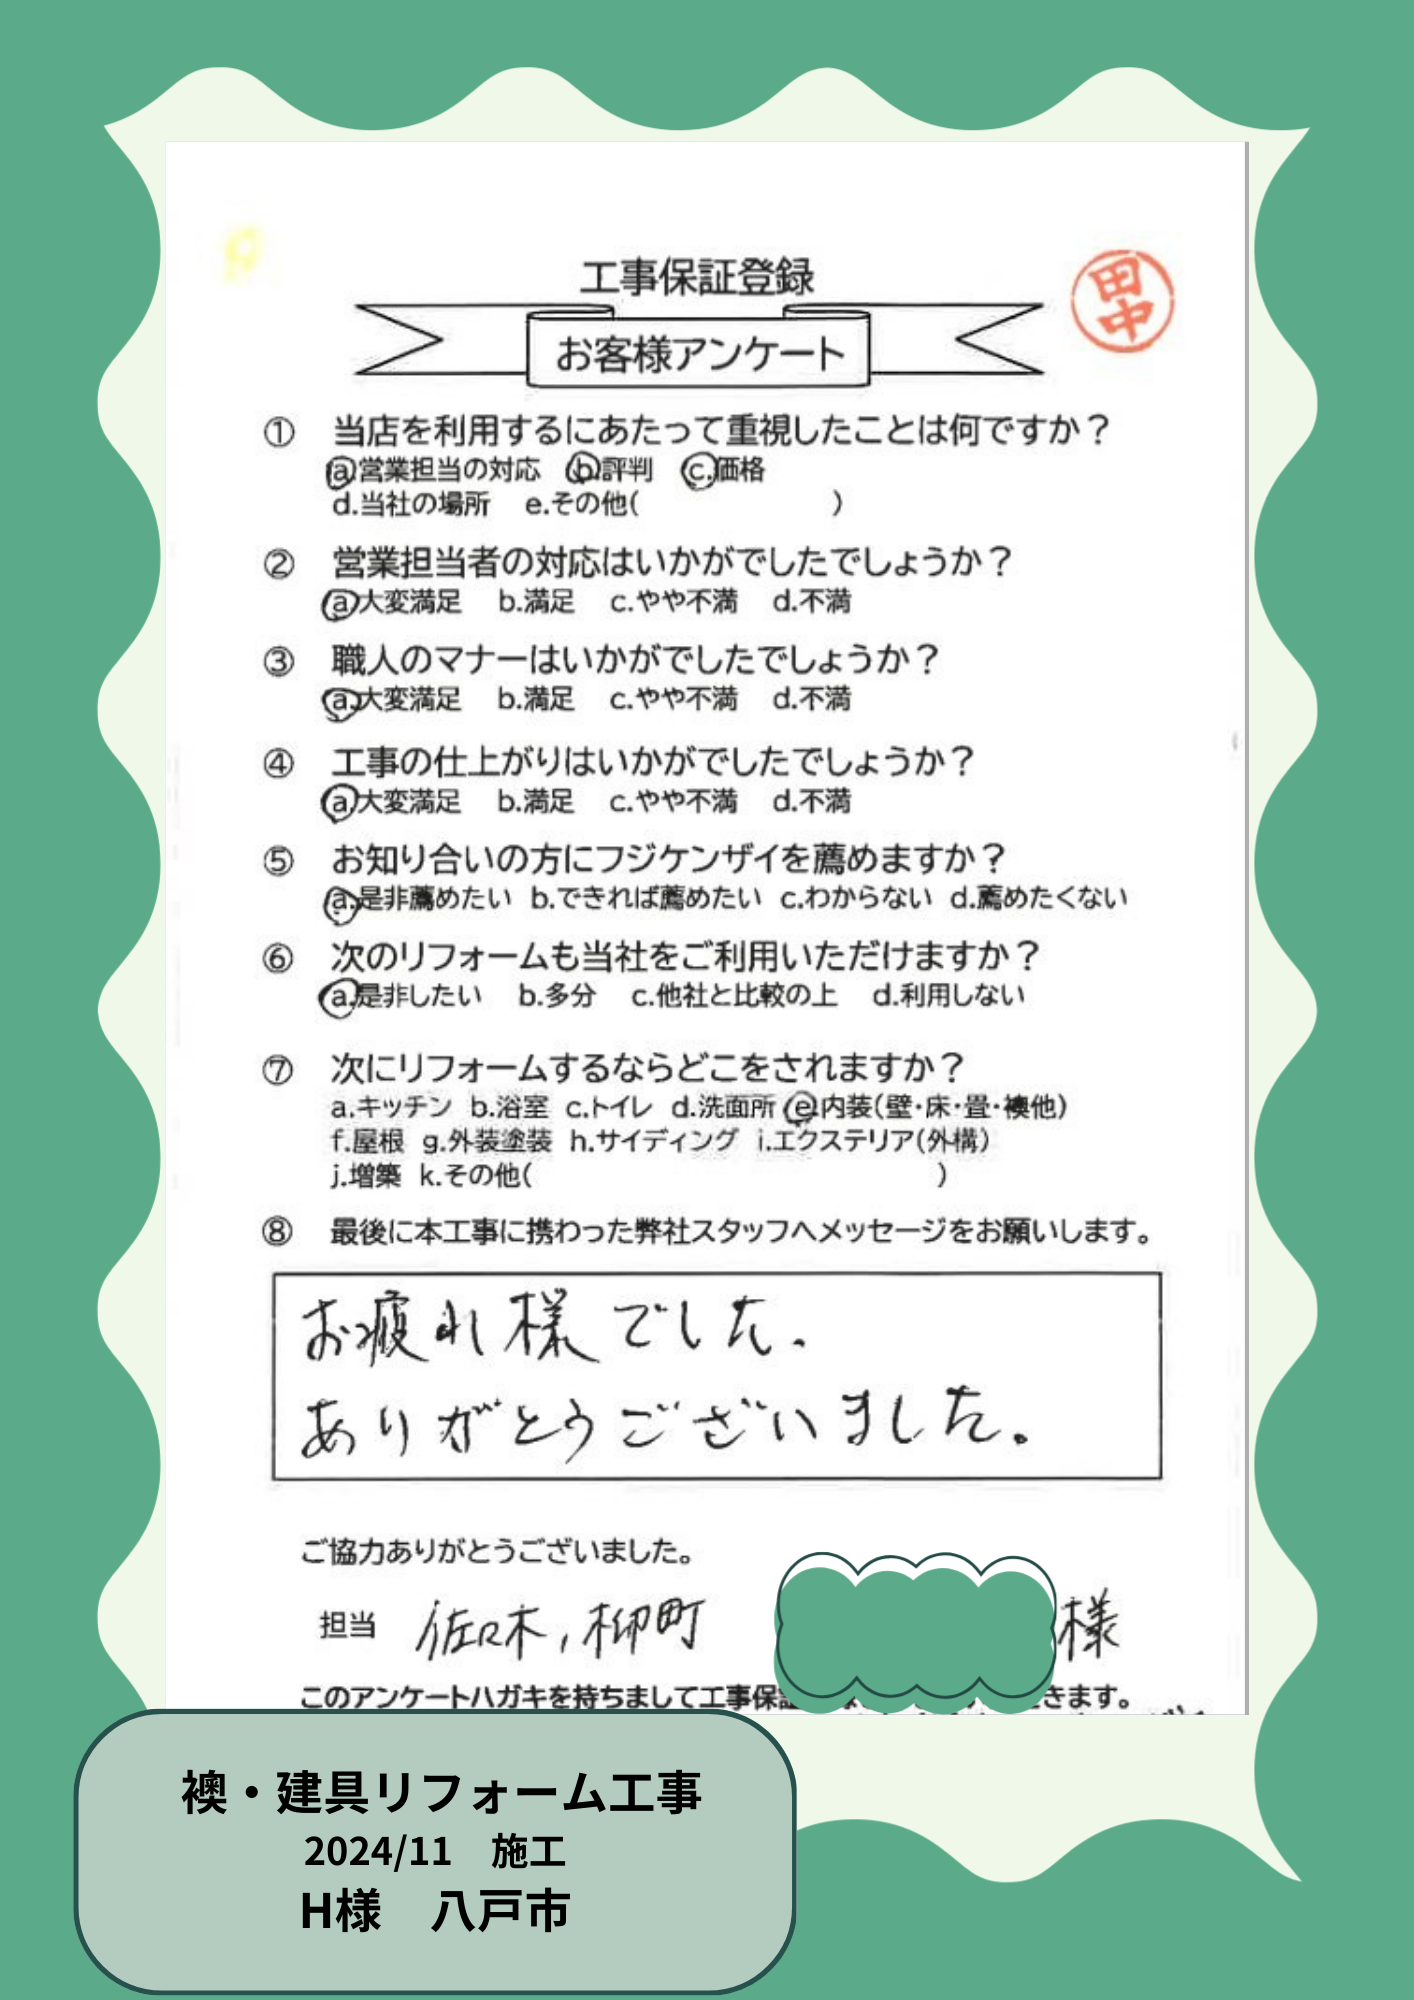 工事保証登録
田中
お客様アンケート
① 当店を利用するにあたって重視したことは何ですか？
a.営業担当の対応 b.評判 c.価格
d.当社の場所 e.その他( )
② 営業担当者の対応はいかがでしたでしょうか？
a.大変満足 b.満足 c.やや不満 d.不満
③ 職人のマナーはいかがでしたでしょうか？
a.大変満足 b.満足 c.やや不満 d.不満
④ 工事の仕上がりはいかがでしたでしょうか？
a.大変満足 b.満足 c.やや不満 d.不満
⑤ お知り合いの方にフジケンザイを薦めますか？
a.是非薦めたい b.できれば薦めたい c.わからない d.薦めたくない
⑥ 次のリフォームも当社をご利用いただけますか？
a.是非したい b.多分 c.他社と比較の上 d.利用しない
⑦ 次にリフォームするならどこをされますか？
a.キッチン b.浴室 c.トイレ d.洗面所 e.内装(壁・床・畳・襖他)
f.屋根 g.外装塗装 h.サイディング i.エクステリア(外構)
j.増築 k.その他( )
⑧ 最後に本工事に携わった弊社スタッフへメッセージをお願いします。
お疲れ様でした。
ありがとうございました。
ご協力ありがとうございました。
担当 佐々木,柳町 様
このアンケートハガキを持ちまして工事保証 きます。
襖・建具リフォーム工事
2024/11 施工
H様 八戸市